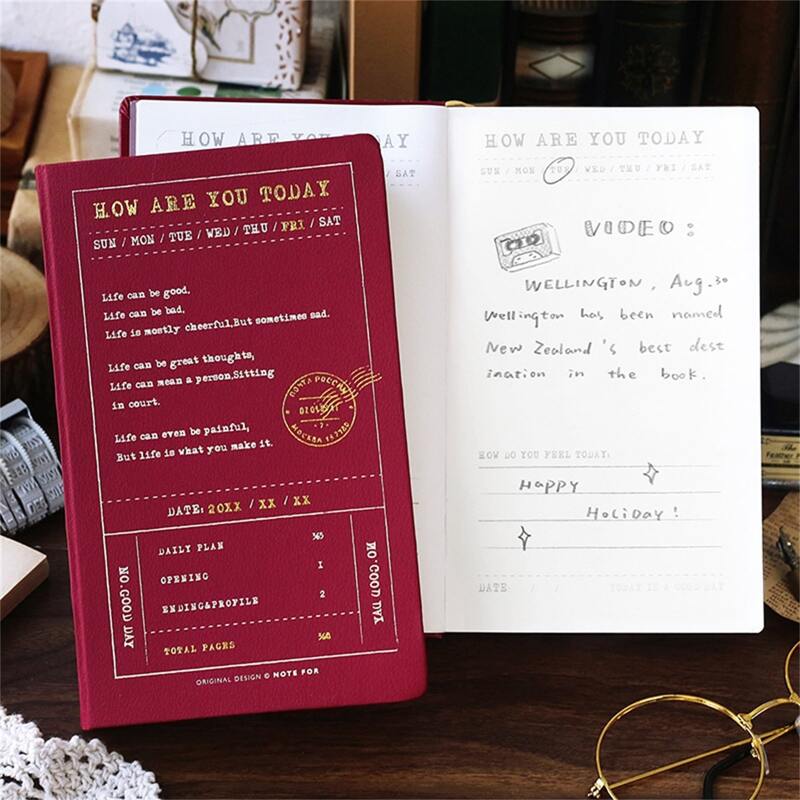 HOW ARE YOU TODAY
SUN / MON / TUE / WED / THU / FRI / SAT
Life can be good,
Life can be bad,
Life is mostly cheerful,But sometimes sad.
Life can be great thoughts,
Life can mean a person,Sitting
in court.
Life can even be painful,
But life is what you make it.
ПОЧТА РОССИИ
МОСКВА
DATE: 20XX / XX / XX
NO. GOOD DAY
DAILY PLAN 365
OPENING 1
ENDING&PROFILE 2
TOTAL PAGES 368
NO. GOOD DAY
ORIGINAL DESIGN © NOTE FOR
HOW ARE YOU TODAY
/ SAT
HOW ARE YOU TODAY
SUN / MON / TUE / WED / THU / FRI / SAT
VIDEO:
WELLINGTON, Aug.30
Wellington has been named
New Zealand's best dest
ination in the book.
HOW DO YOU FEEL TODAY:
Happy
Holiday!
DATE / / TODAY IS A GOOD DAY